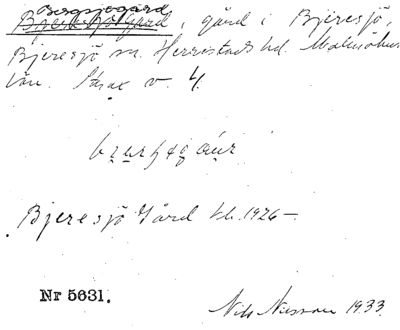 Bergsjögård
Bjeresjö Gård, gård i Bjeresjö,
Bjeresjö sn. Herrestads hd. Malmöhus
län. Strax v. 4.
Bjeresjö Gård tb. 1926–
Nr 5631.
Nils Nilsson 1933.